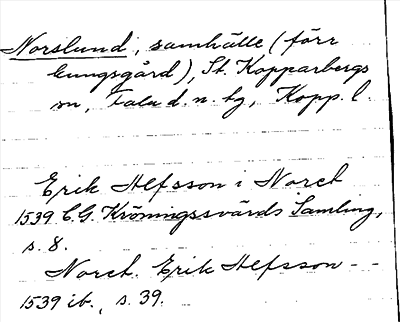 Norslund, samhälle (förr
kungsgård), St. Kopparbergs
sn, Falu d. n. tg, Kopp. l.
Erik Olfsson i Noret
1539 C.G. Kröningssvärds Samling,
s. 8.
Noret. Erik Olfsson - -
1539 ib., s. 39.